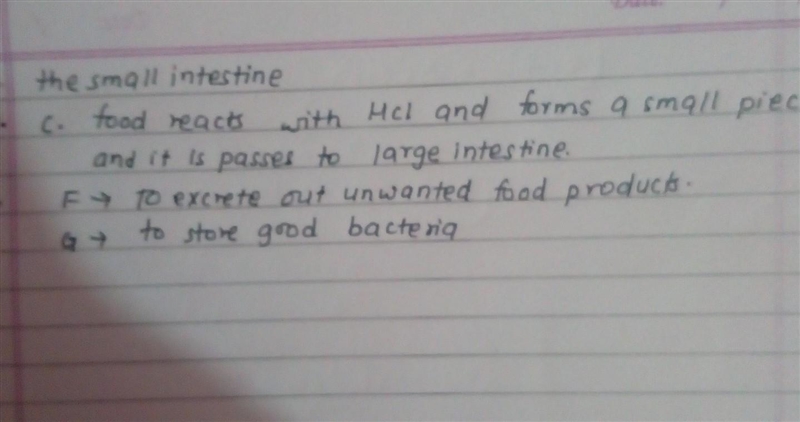 the small intestine
c. food reacts with Hcl and forms a small piec
and it is passes to large intestine.
F → To excrete out unwanted food products.
G → to store good bacteria